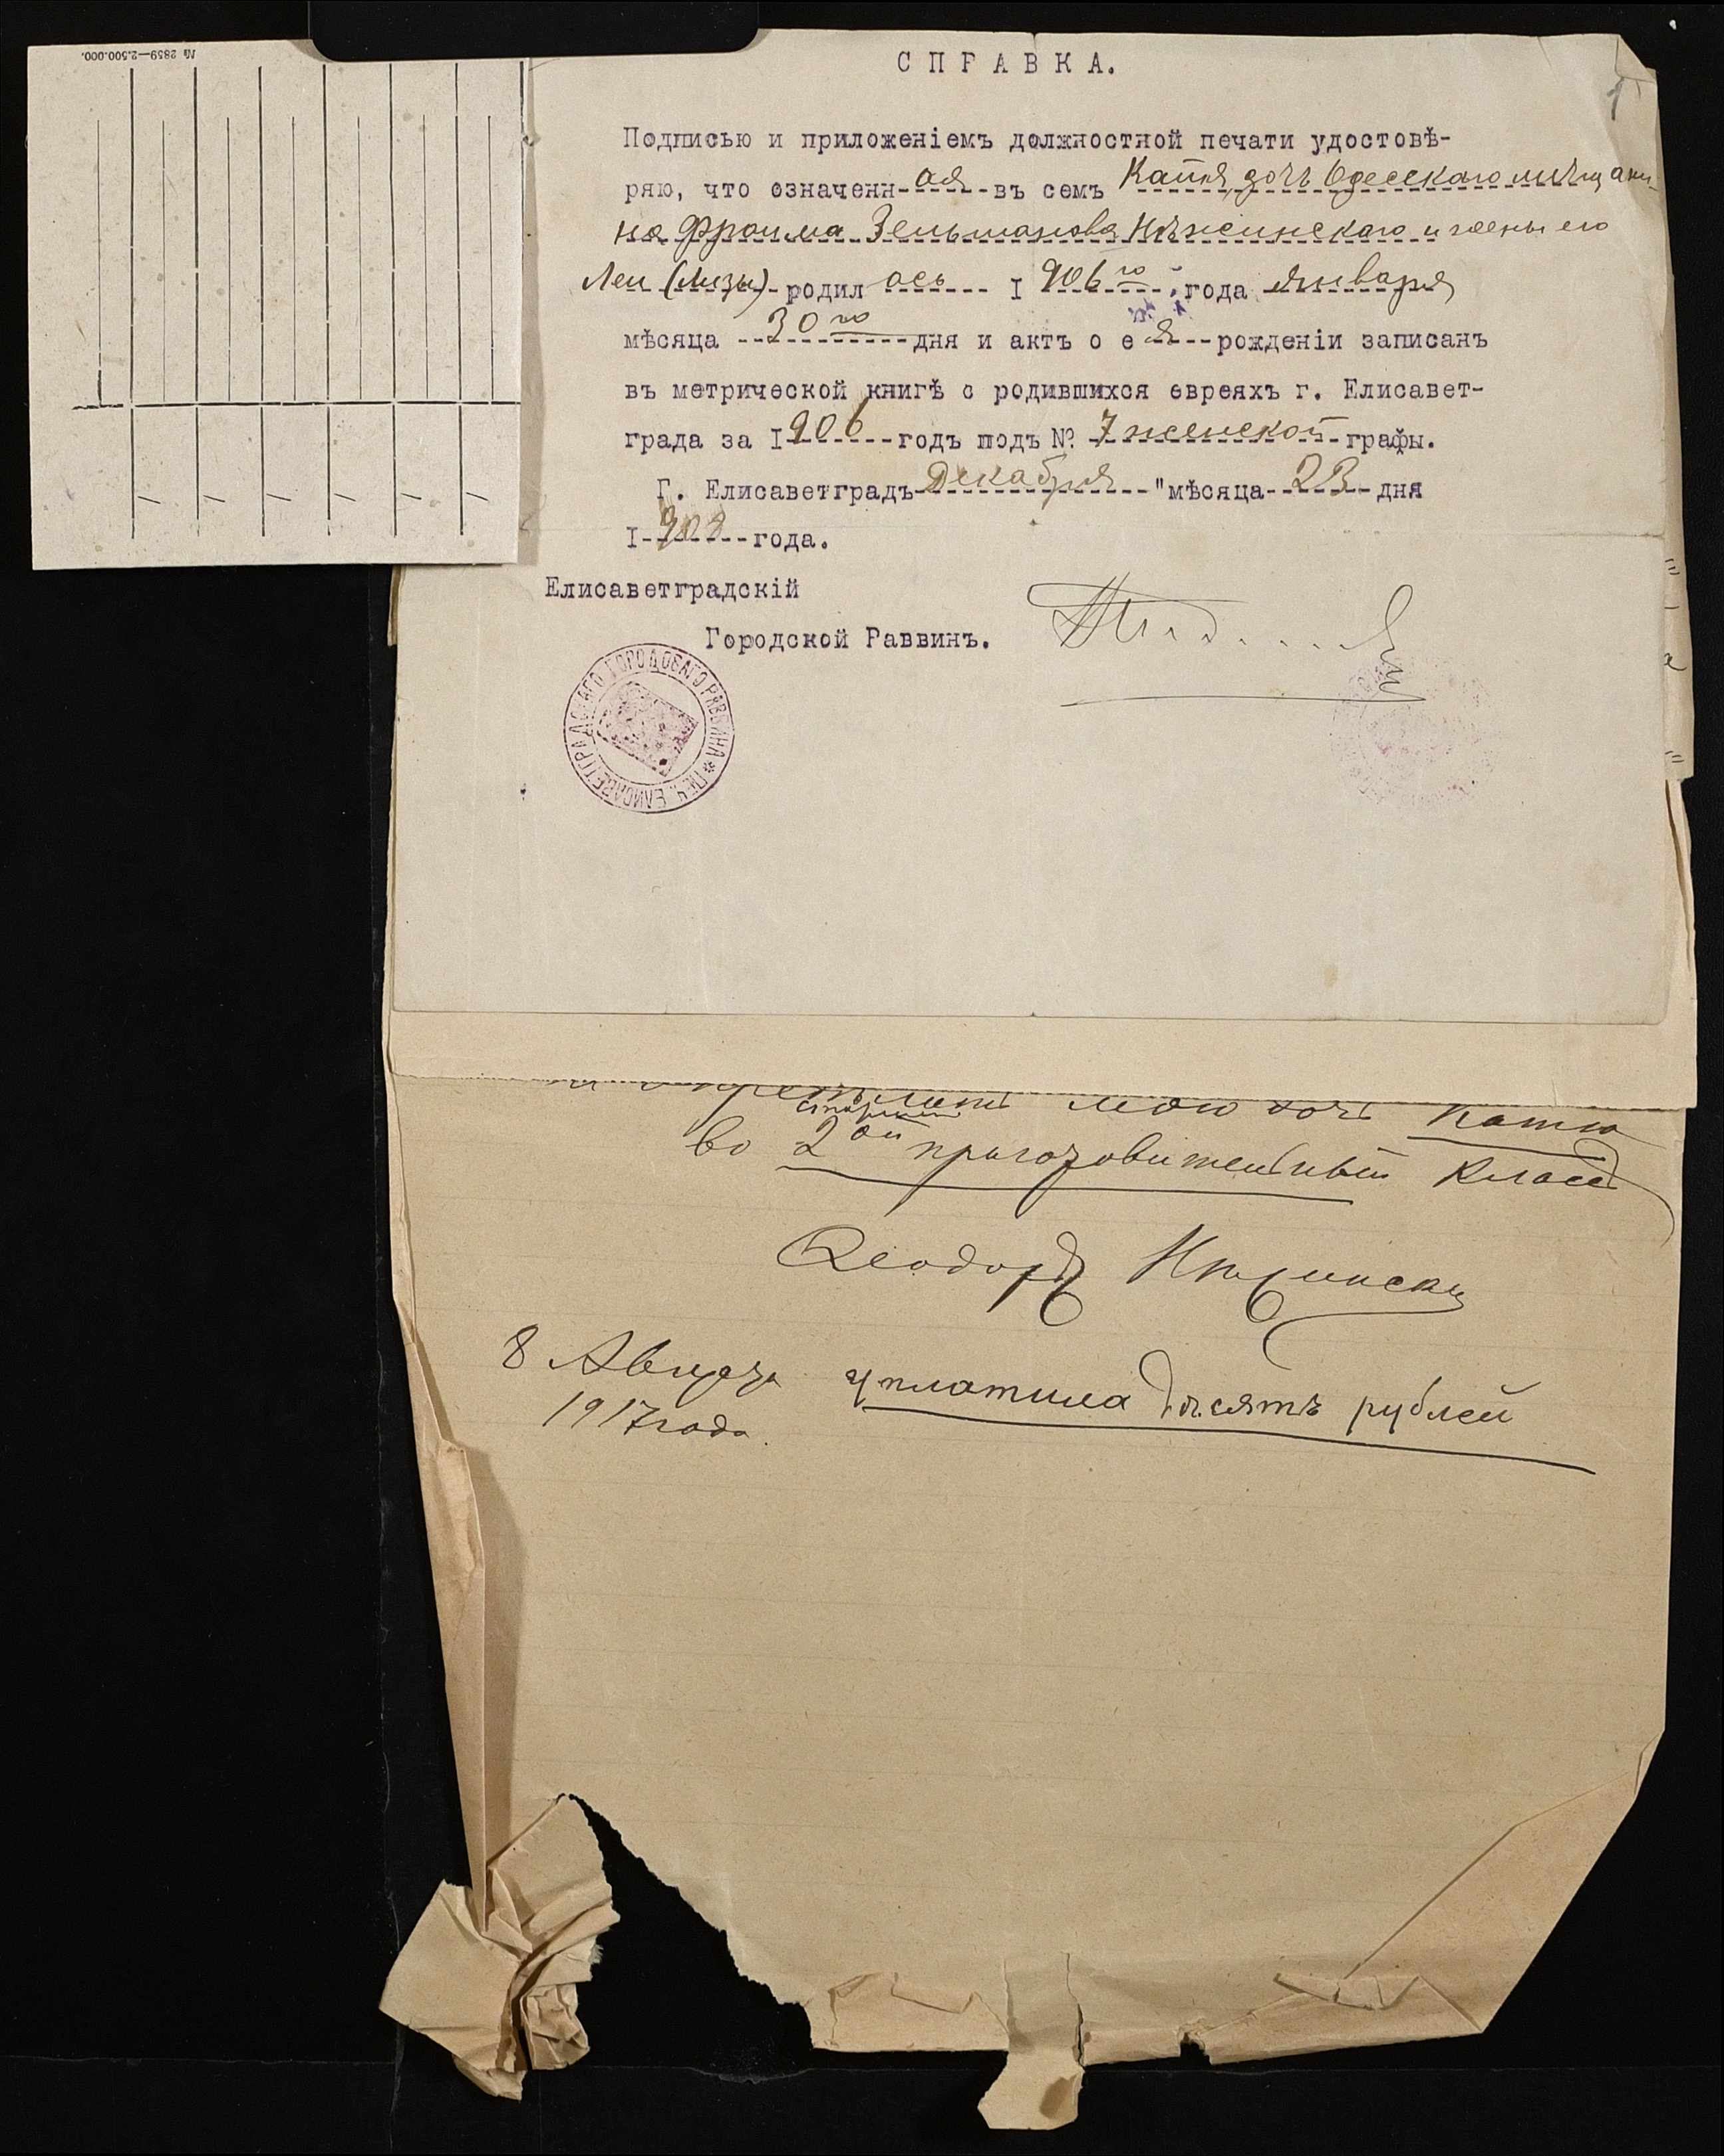 № 2859—2.500.000.
СПРАВКА.
1
Подписью и приложеніемъ должностной печати удостовѣ-
ряю, что означенн-ая--въ семъ Катя, дочь Одесскаго мѣщани-
на Фроима Зельманова Нѣжинскаго и жены его
Леи (Лизы)-родил ась--- I 906 го года Января
мѣсяца --30 го--дня и актъ о е я--рожденіи записанъ
въ метрической книгѣ о родившихся евреяхъ г. Елисавет-
града за I 906--годъ подъ № 7 женской-графы.
Г. Елисаветградъ Декабря "мѣсяца-23-дня
I-908-года.
Елисаветградскій
Городской Раввинъ.
ПЕЧ. ЕЛИСАВЕТГРАДСКАГО ГОРОДОВАГО РАВВИНА *
мою дочь Катю
старший
во 2ой приготовительный класс
Феодоръ Нѣжински
8 Августа уплатила десять рублей
1917 года.